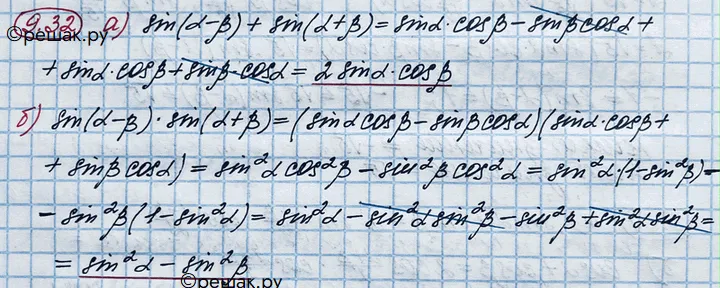 9.32 а) sin(α-β) + sin(α+β) = sinα·cosβ - sinβcosα +
©решак.ру
+ sinα·cosβ + sinβ·cosα = 2 sinα·cosβ
б) sin(α-β)·sin(α+β) = (sinαcosβ - sinβcosα)(sinα·cosβ +
+ sinβcosα) = sin²αcos²β - sin²βcos²α = sin²α·(1-sin²β) -
- sin²β(1-sin²α) = sin²α - sin²αsin²β - sin²β + sin²αsin²β =
= sin²α - sin²β
©решак.ру